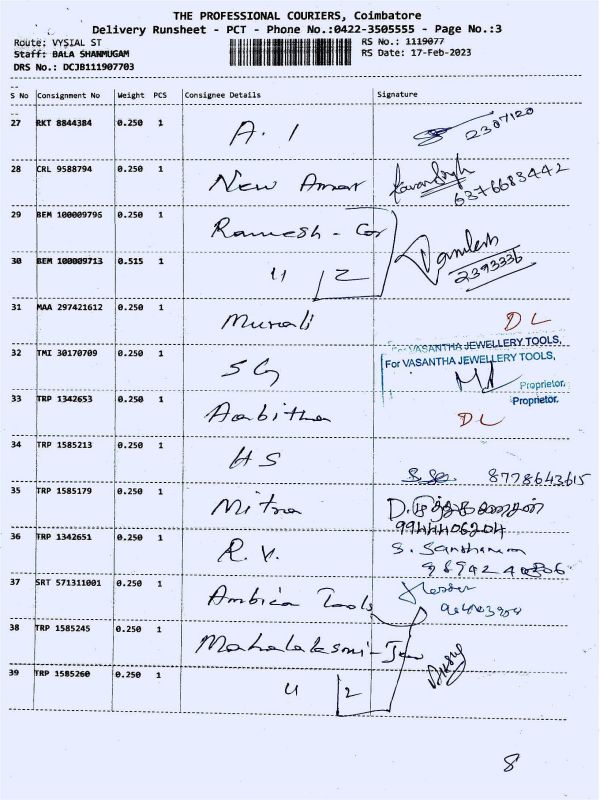 THE PROFESSIONAL COURIERS, Coimbatore
Delivery Runsheet - PCT - Phone No.:0422-3505555 - Page No.:3
Route: VYSIAL ST
RS No.: 1119077
Staff: BALA SHANMUGAM
RS Date: 17-Feb-2023
DRS No.: DCJB111907703
S No Consignment No Weight PCS Consignee Details Signature
27 RKT 8844384 0.250 1 A. 1 2307120
28 CRL 9588794 0.250 1 New Amar 6376683442
29 BEM 100009796 0.250 1 Ramesh - Cor
30 BEM 100009713 0.515 1 " 2 2393336
31 MAA 297421612 0.250 1 Murali DL
For VASANTHA JEWELLERY TOOLS,
32 TMI 30170709 0.250 1 SG For VASANTHA JEWELLERY TOOLS,
Proprietor.
33 TRP 1342653 0.250 1 Aabitha Proprietor.
DL
34 TRP 1585213 0.250 1 HS 8778643615
35 TRP 1585179 0.250 1 Mitra
9944406204
36 TRP 1342651 0.250 1 R.V. S.
37 SRT 571311001 0.250 1 Ambica Tools
38 TRP 1585245 0.250 1 Mahalaksmi-Jew
39 TRP 1585260 0.250 1 " 2
8